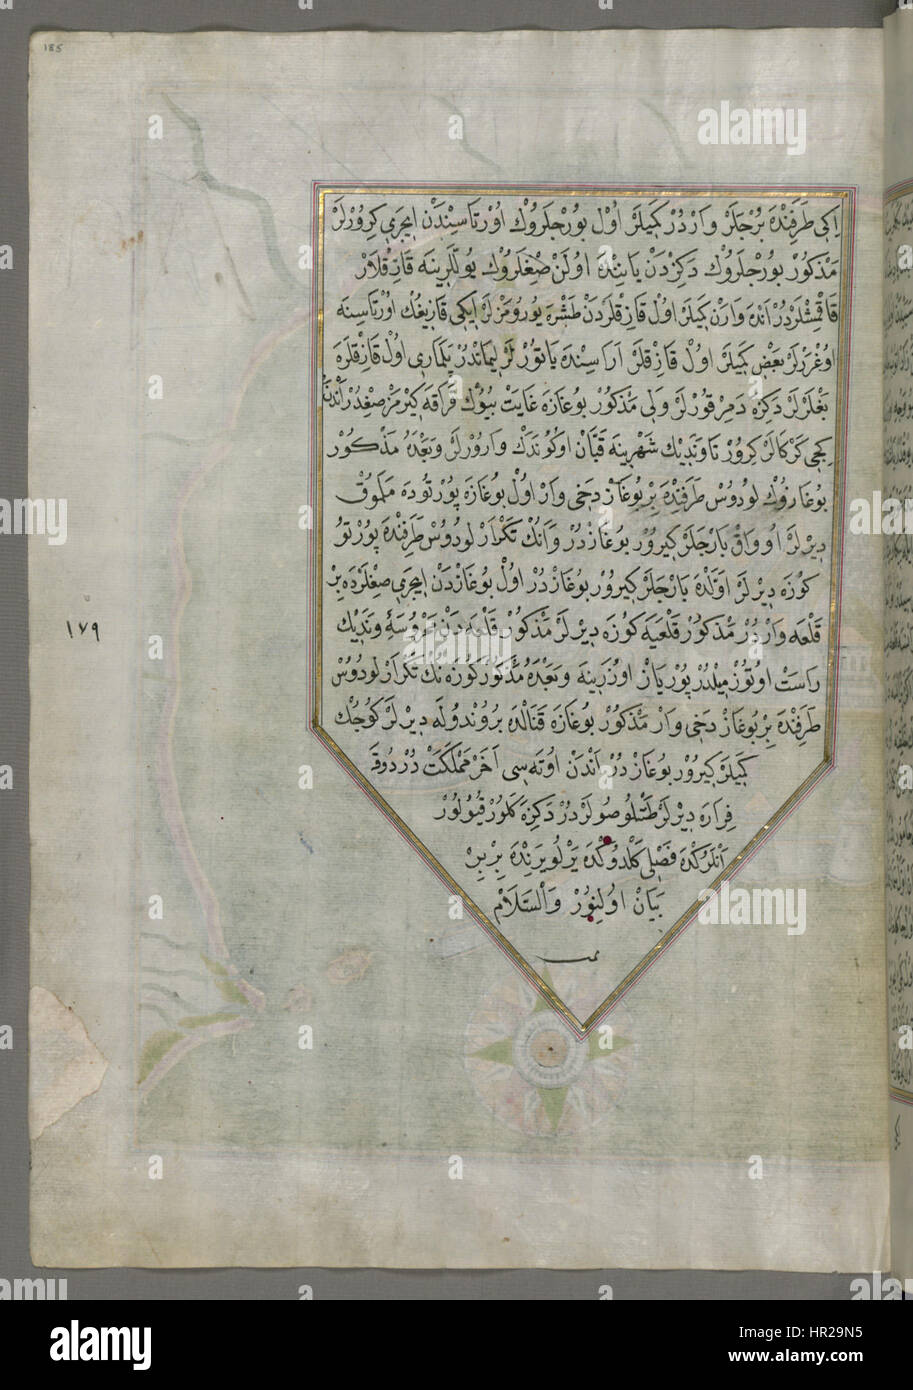 185
ایکی طرفنده برجلر واردر کمیلر اول بورجلروڭ اورتاسیندن ایچری کیرورلر
مذکور بورجلروڭ دکزدن یاننده اولن صغلروڭ یوللرینه قازقلار
قاقمشلردر آنده وارن کمیلر اول قازقلردن طشره یورومزلر ایکی قازیغڭ اورتاسینه
اوغررلر بعض کمیلر اول قازقلر اراسینده یاتورلر لیماندر یلماری اول قازقلره
بغلرلر دکزه دمر قورلر ولی مذکور بوغازه غایت بیوك قراقه کیرمز صغدر آندن
کیرور تا وندیك شهرینه قپان اوکوندك وارورلر وبعده مذکور
بوغازوڭ لودوس طرفنده بر بوغاز دخی وار اول بوغازه پورتوده ملموق
دیرلر اوواق بارجلر کیرور بوغازدر وانڭ تکرار لودوس طرفنده پورتو
کوزه دیرلر اولده بارجلر کیرور بوغازدر اول بوغازدن ایچری صغلرده بر
قلعه واردر مذکور قلعیه کوزه دیرلر مذکور قلعه دن محروسهٔ وندیك
راست اوتوز میلدر پوریاز اوزرینه وبعده مذکور کوزه نڭ تکرار لودوس
طرفنده بر بوغاز دخی وار مذکور بوغازه قنالده بروندوله دیرلر کوجك
کمیلر کیرور بوغازدر اندن اوته سی آخر مملکت در دوقه
فراره دیرلر طتلو صولردر دکزه کلور قیولور
آنلرکده فصلی کلدوکده یرلو یرنده بر بر
بیان اولنور والسلام
تمت
١٧٩
alamy
Image ID: HR29N5
www.alamy.com